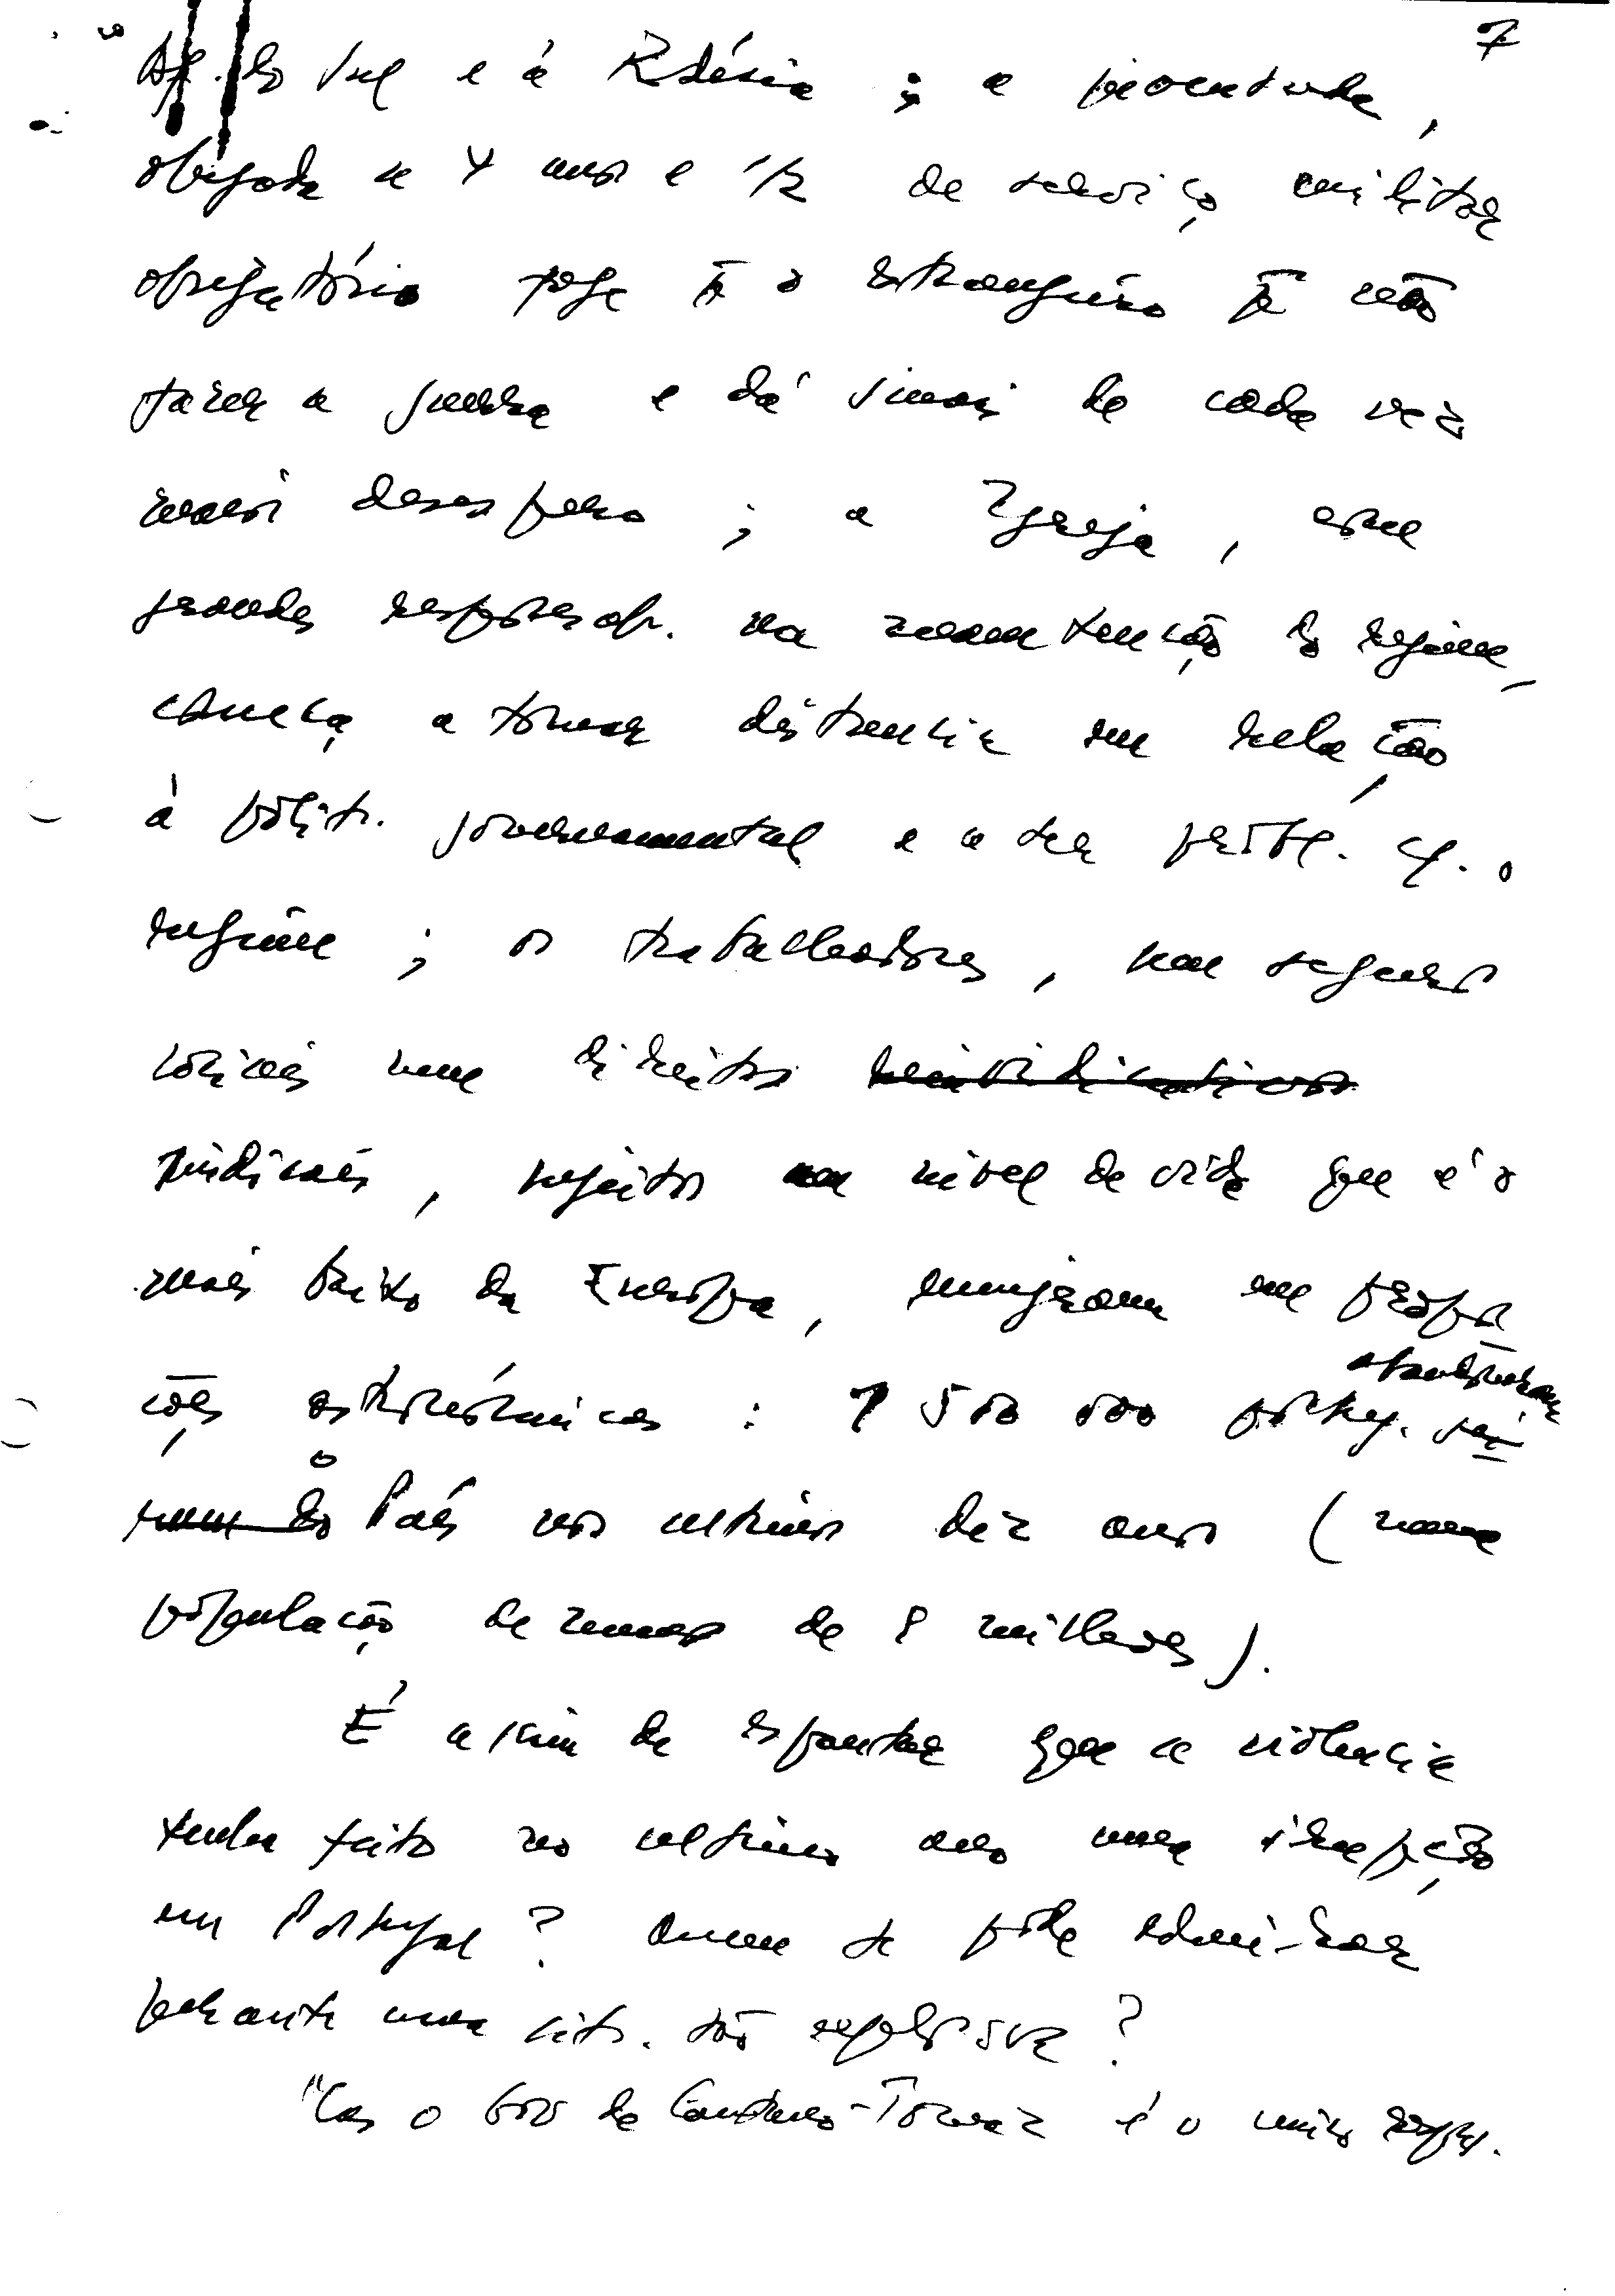 7
Af. do Sul e à Rodésia ; a juventude,
obrigada a 4 anos e 1/2 de serviço militar
obrigatório foge p̄ o estrangeiro p̄ não
fazer a guerra e dá sinais de cada vez
mais desespero ; a Igreja, com
grandes responsab. na manutenção do regime,
começa a tomar distância em relação
à polít. governamental e a ter probl. c/. o
regime ; os trabalhadores, sem seguros
sociais nem direitos reivindicativos
sindicais, sujeitos nível de vida que é o
mais baixo da Europa, emigram em propor
ções astronómicas : 1 500 000 portug. saí
abandonaram
ram do o País nos ultimos dez anos (numa
população de menos de 8 milhões).
É assim de espantar que a violencia
tenha feito no ultimo ano uma irrupção
em Portugal? Quem se pode admirar
perante uma sit. tão explosiva?
"Mas o Gov de Caetano-Tomaz é o unico respons.